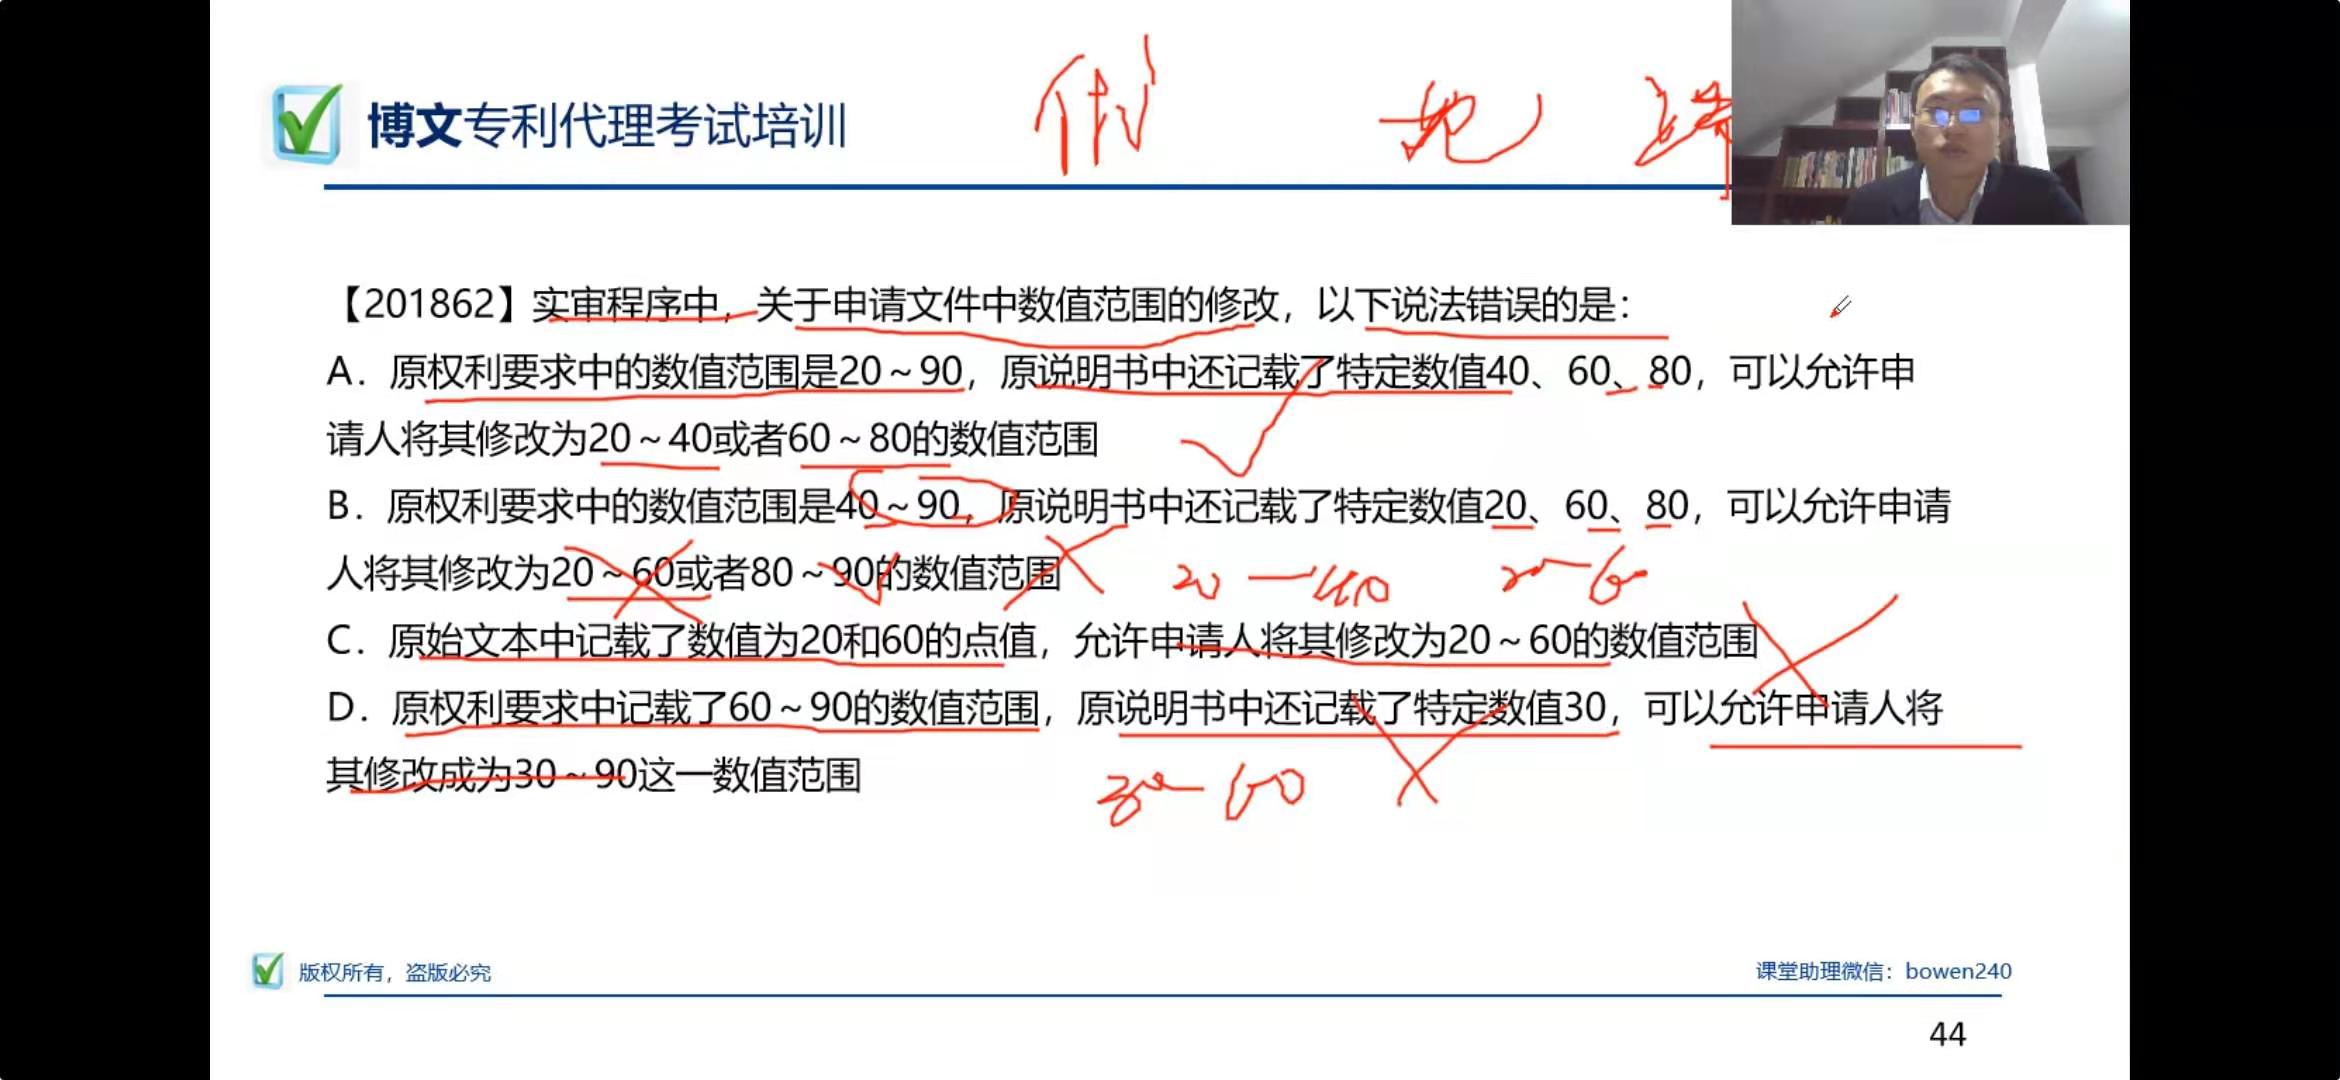 博文专利代理考试培训
【201862】实审程序中，关于申请文件中数值范围的修改，以下说法错误的是：
A．原权利要求中的数值范围是20～90，原说明书中还记载了特定数值40、60、80，可以允许申
请人将其修改为20～40或者60～80的数值范围
B．原权利要求中的数值范围是40～90，原说明书中还记载了特定数值20、60、80，可以允许申请
人将其修改为20～60或者80～90的数值范围
20—40
20—60
C．原始文本中记载了数值为20和60的点值，允许申请人将其修改为20～60的数值范围
D．原权利要求中记载了60～90的数值范围，原说明书中还记载了特定数值30，可以允许申请人将
其修改成为30～90这一数值范围
30—60
版权所有，盗版必究
课堂助理微信：bowen240
44